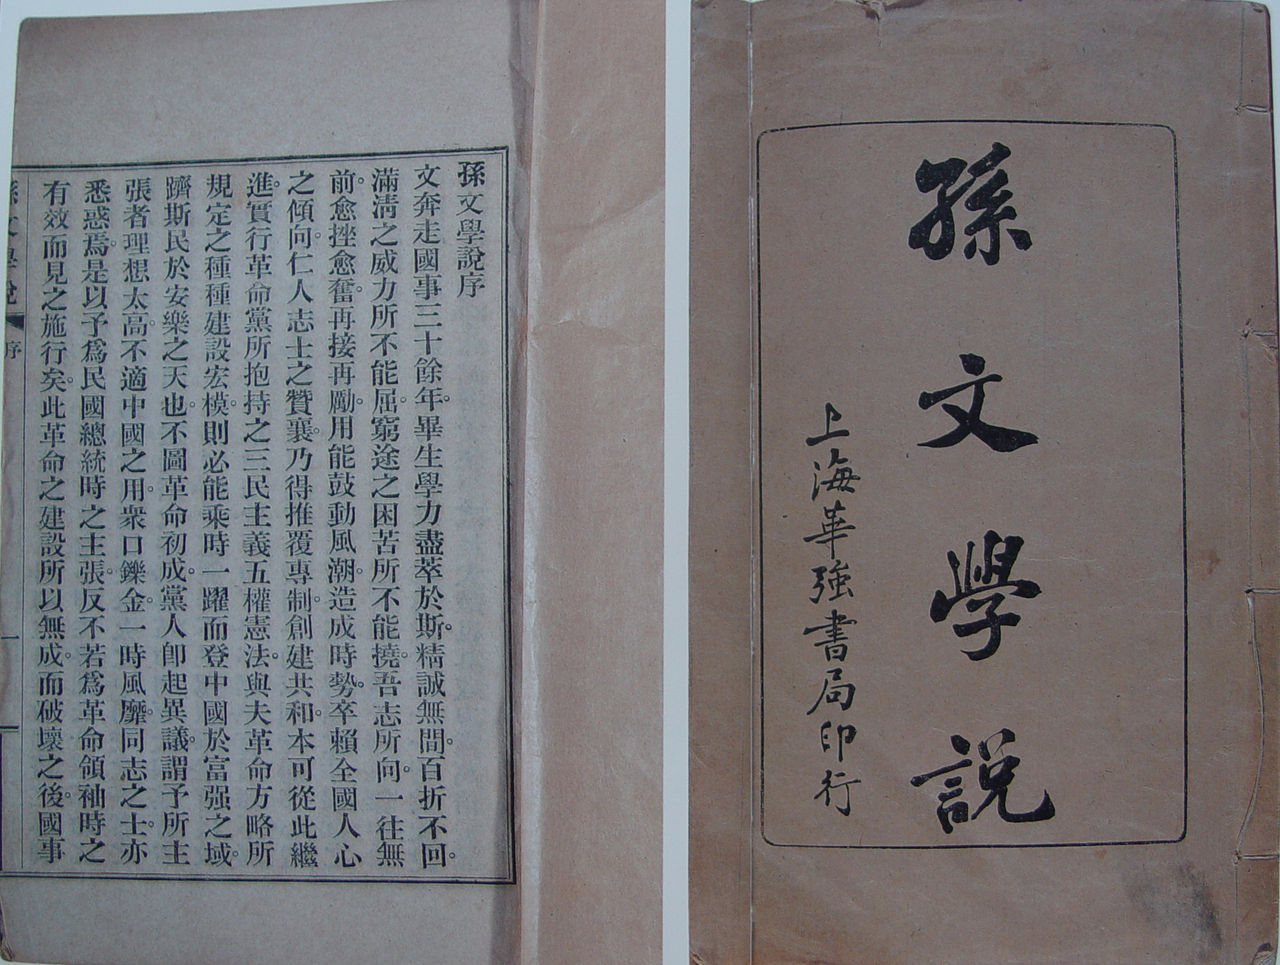 孫文學說
上海華強書局印行
孫文學說序
文奔走國事三十餘年。畢生學力盡萃於斯。精誠無間。百折不回。
滿清之威力所不能屈。窮途之困苦所不能撓。吾志所向。一往無
前。愈挫愈奮。再接再勵。用能鼓動風潮。造成時勢。卒賴全國人心
之傾向。仁人志士之贊襄。乃得推覆專制。創建共和。本可從此繼
進。實行革命黨所抱持之三民主義五權憲法。與夫革命方略所
規定之種種建設宏模。則必能乘時一躍而登中國於富强之域。
躋斯民於安樂之天也。不圖革命初成。黨人卽起異議。謂予所主
張者理想太高。不適中國之用。衆口鑠金。一時風靡。同志之士。亦
悉惑焉。是以予爲民國總統時之主張。反不若爲革命領袖時之
有效而見之施行矣。此革命之建設所以無成。而破壞之後。國事
孫文學說 序 一